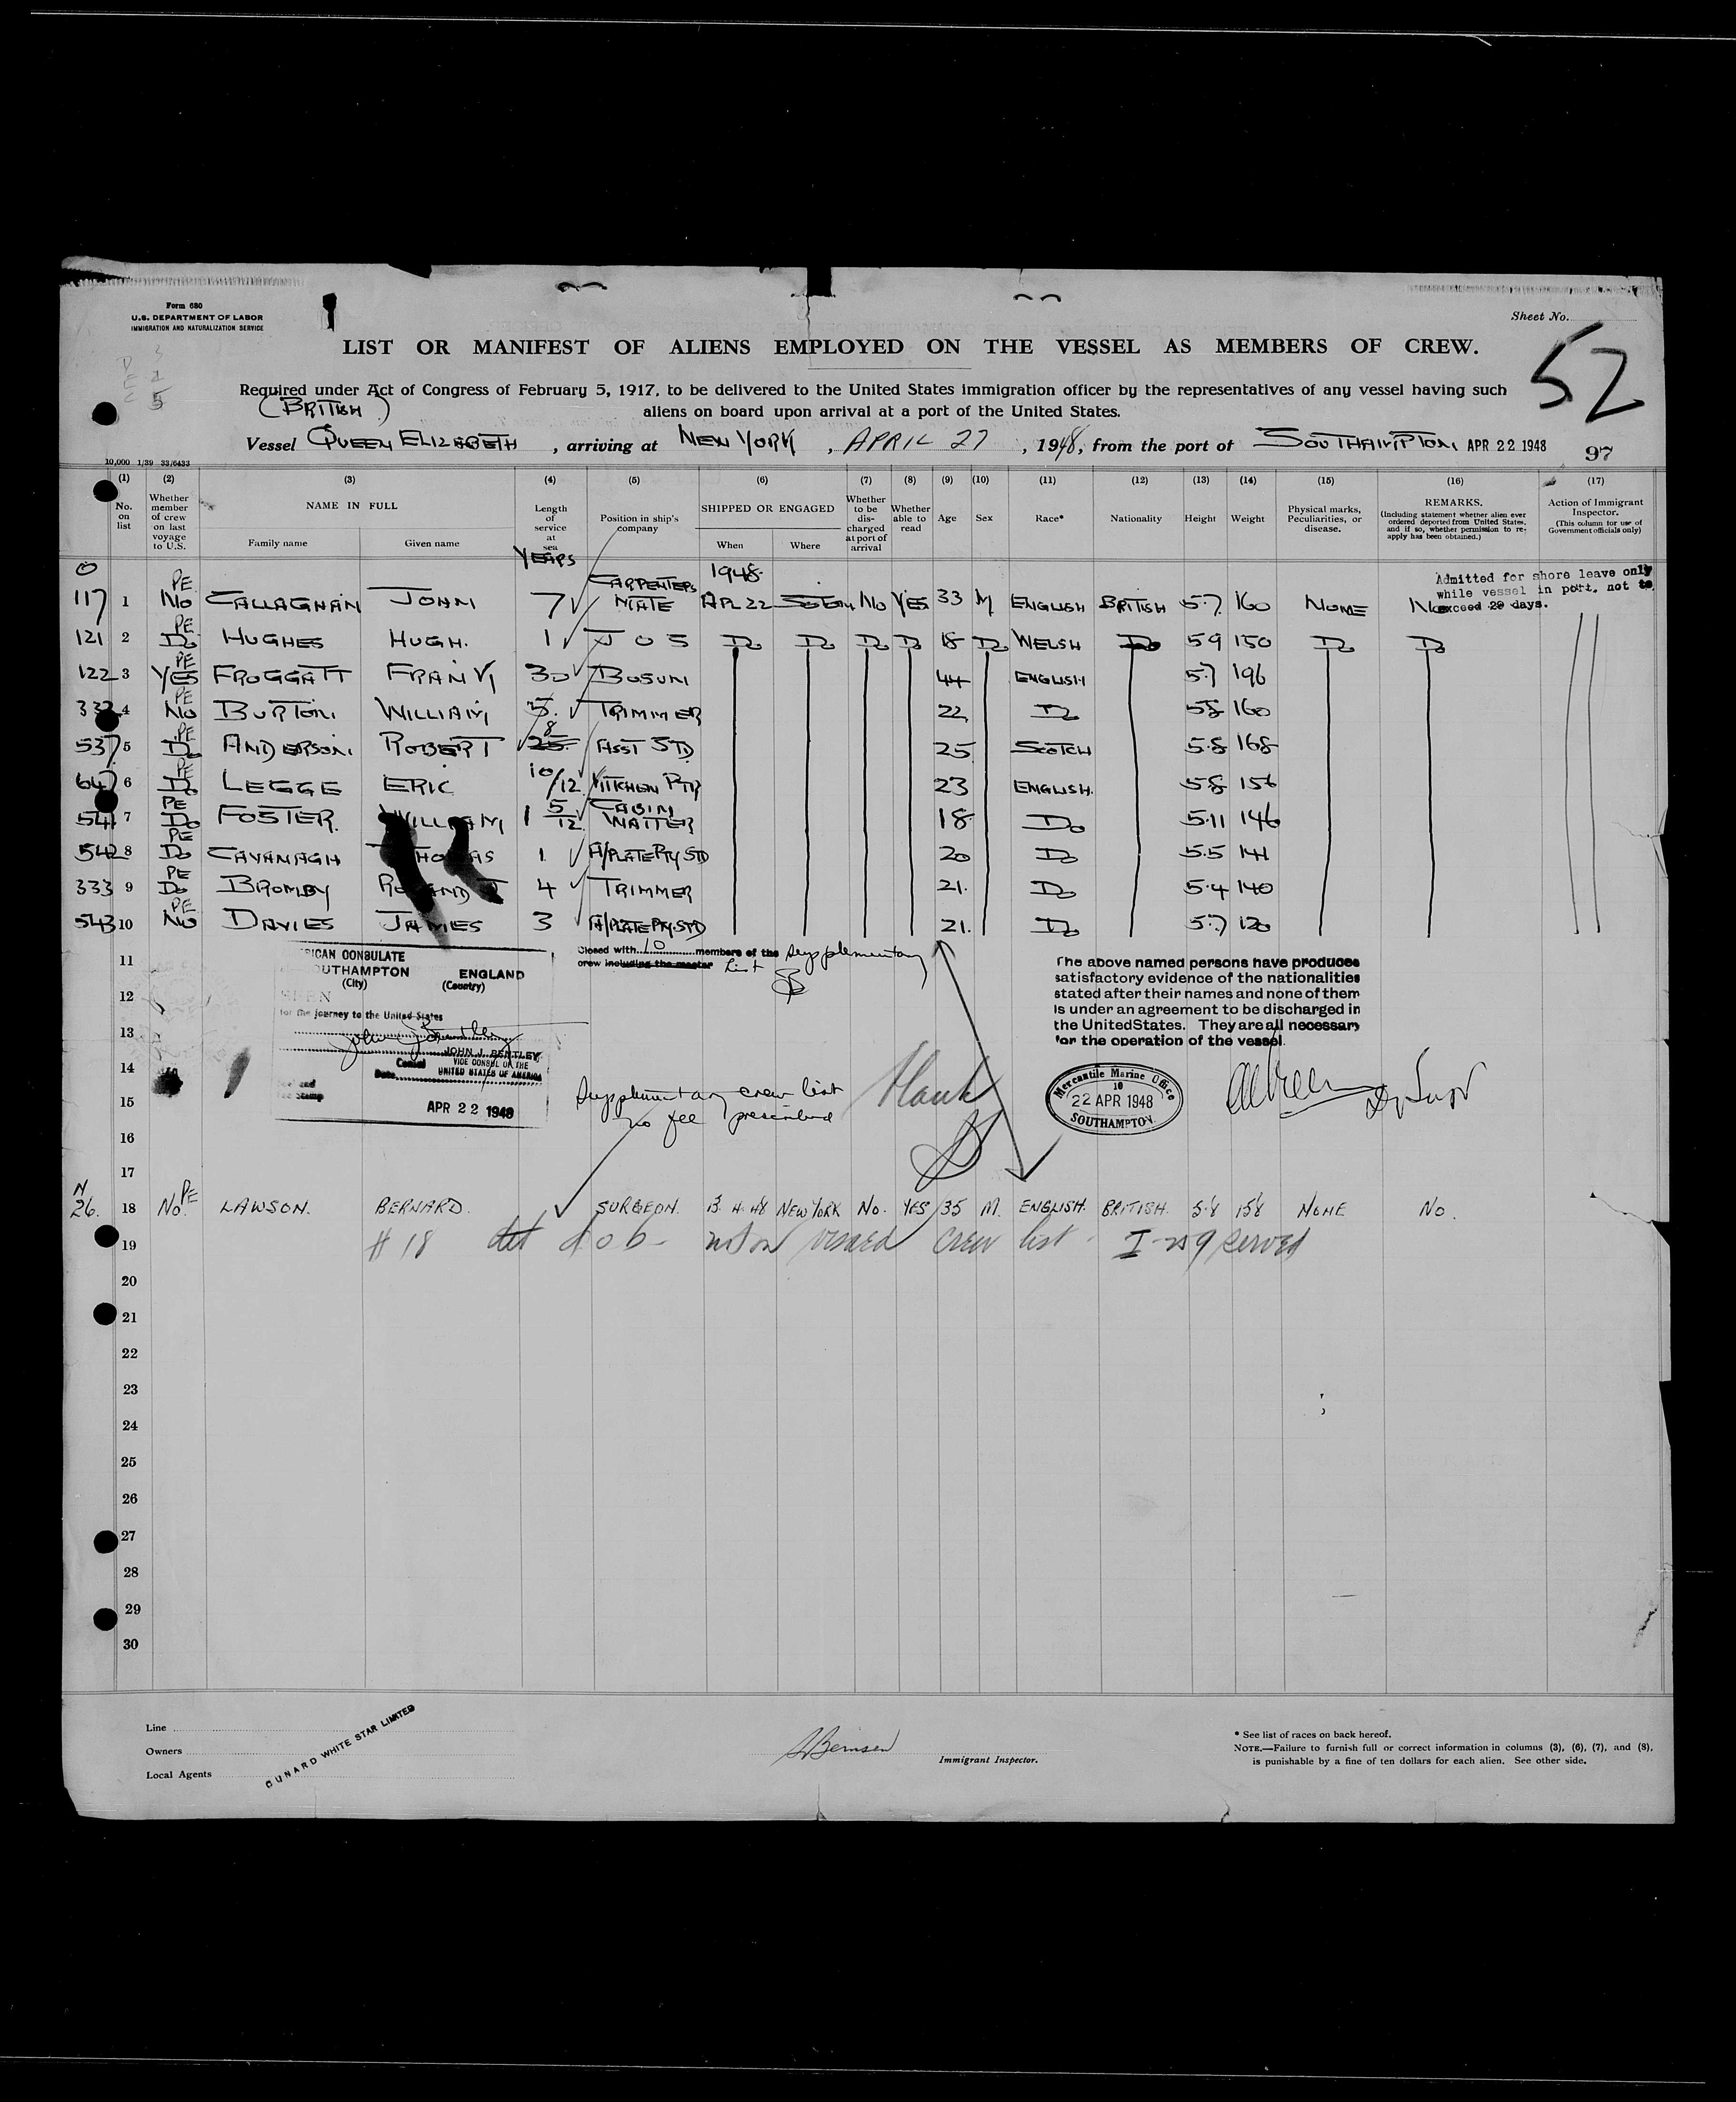 Form 680
U.S. DEPARTMENT OF LABOR
IMMIGRATION AND NATURALIZATION SERVICE
Sheet No.
52
LIST OR MANIFEST OF ALIENS EMPLOYED ON THE VESSEL AS MEMBERS OF CREW.
Required under Act of Congress of February 5, 1917, to be delivered to the United States immigration officer by the representatives of any vessel having such
aliens on board upon arrival at a port of the United States.
(BRITISH)
Vessel QUEEN ELIZABETH, arriving at NEW YORK, APRIL 27, 1948, from the port of SOUTHAMPTON, APR 22 1948
97
10,000 1/39 33/6433
(1) (2) (3) (4) (5) (6) (7) (8) (9) (10) (11) (12) (13) (14) (15) (16) (17)
No. on list
Whether member of crew on last voyage to U.S.
NAME IN FULL
Family name Given name
Length of service at sea
YEARS
Position in ship's company
SHIPPED OR ENGAGED
When Where
Whether to be discharged at port of arrival
Whether able to read
Age
Sex
Race*
Nationality
Height
Weight
Physical marks, Peculiarities, or disease.
REMARKS.
(Including statement whether alien ever ordered deported from United States, and if so, whether permission to reapply has been obtained.)
Action of Immigrant Inspector.
(This column for use of Government officials only)
0
1948
Admitted for shore leave only
while vessel in port, not to
exceed 29 days.
117 1 PE No CALLAGHAN JOHN 7 CARPENTERS MATE APL 22 SOTON No YES 33 M ENGLISH BRITISH 5.7 160 NONE No
121 2 PE Do HUGHES HUGH. 1 J O S Do Do Do Do 18 Do WELSH Do 5 9 150 Do Do
122 3 PE YES FROGGATT FRANK 30 BOSUN 44 ENGLISH 5.7 196
332 4 PE No BURTON. WILLIAM 5. TRIMMER 22 Do 5 8 160
537 5 PE Do ANDERSON. ROBERT 8 25 ASST STD 25 SCOTCH 5.8 168
647 6 PE Do LEGGE ERIC 10/12 KITCHEN PTR 23 ENGLISH. 5.8 156
541 7 PE Do FOSTER. WILLIAM 1 5/12 CABIN WAITER 18 Do 5.11 146
542 8 PE Do CAVANAGH THOMAS 1 A/PLATE PTY STD 20 Do 5.5 141
333 9 PE Do BROMBY ROLAND 4 TRIMMER 21. Do 5.4 140
543 10 PE No DAVIES JAMES 3 A/PLATE PTY. STD 21. Do 5.7 120
11
Closed with 10 members of the Supplementary
crew including the master List
RICAN CONSULATE
OUTHAMPTON ENGLAND
(City) (Country)
for the journey to the United States
JOHN J. BENTLEY
Consul VICE CONSUL OF THE
Date UNITED STATES OF AMERICA
APR 22 1948
The above named persons have produced
satisfactory evidence of the nationalities
stated after their names and none of them
is under an agreement to be discharged in
the United States. They are all necessary
for the operation of the vessel.
12
13
14
15
Supplementary crew list
no fee prescribed
Blank
Mercantile Marine Office
10
22 APR 1948
SOUTHAMPTON
Dy Supt
16
17
N 26. 18 No. PE LAWSON. BERNARD. SURGEON. 13. 4. 48 NEW YORK No. YES 35 M. ENGLISH. BRITISH. 5.8 158 NONE No.
19 # 18 det d o b - not on visaed crew list - I-259 served
20
21
22
23
24
25
26
27
28
29
30
Line
Owners
Local Agents
CUNARD WHITE STAR LIMITED
Immigrant Inspector.
* See list of races on back hereof.
NOTE.—Failure to furnish full or correct information in columns (3), (6), (7), and (8),
is punishable by a fine of ten dollars for each alien. See other side.